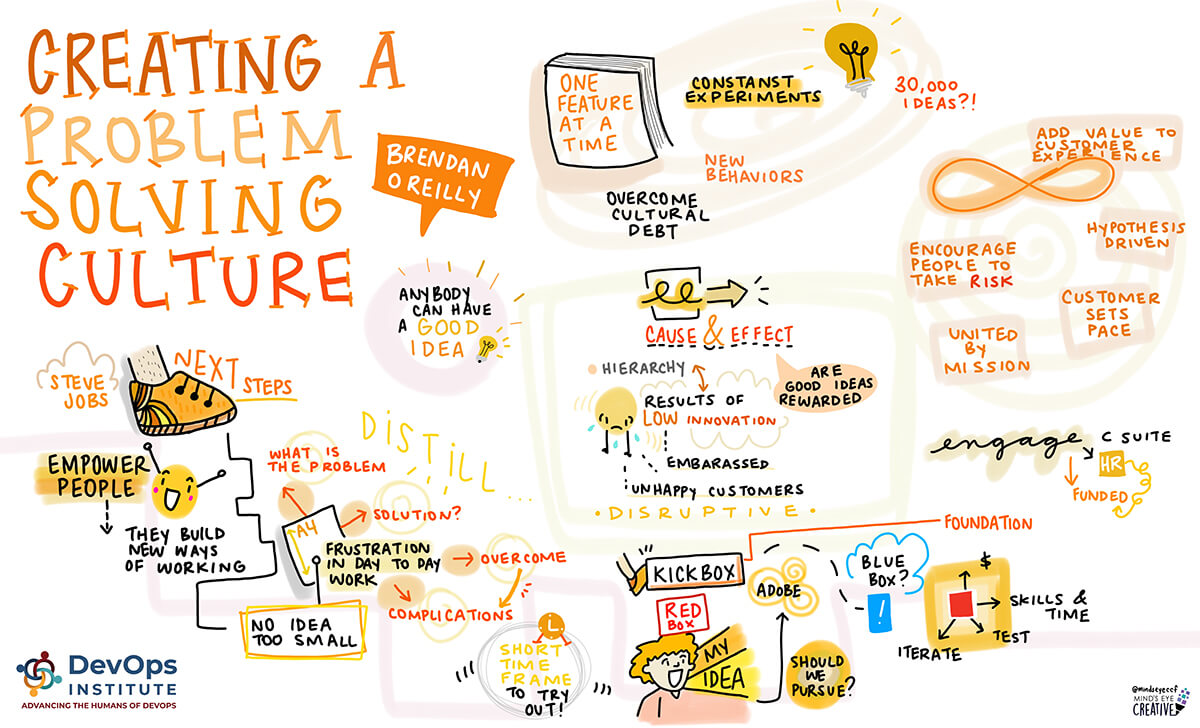 CREATING A
PROBLEM
SOLVING
CULTURE
BRENDAN
O REILLY
ONE
FEATURE
AT A
TIME
CONSTANST
EXPERIMENTS
30,000
IDEAS?!
NEW
BEHAVIORS
OVERCOME
CULTURAL
DEBT
ADD VALUE TO
CUSTOMER
EXPERIENCE
HYPOTHESIS
DRIVEN
ENCOURAGE
PEOPLE TO
TAKE RISK
CUSTOMER
SETS
PACE
UNITED
BY
MISSION
ANYBODY
CAN HAVE
A GOOD
IDEA
CAUSE & EFFECT
HIERARCHY
ARE
GOOD IDEAS
REWARDED
RESULTS OF
LOW INNOVATION
EMBARASSED
UNHAPPY CUSTOMERS
• DISRUPTIVE •
engage
C SUITE
HR
FUNDED
STEVE
JOBS
NEXT
STEPS
EMPOWER
PEOPLE
THEY BUILD
NEW WAYS
OF WORKING
DISTILL...
WHAT IS
THE PROBLEM
SOLUTION?
A4
FRUSTRATION
IN DAY TO DAY
WORK
OVERCOME
COMPLICATIONS
NO IDEA
TOO SMALL
SHORT
TIME
FRAME
TO TRY
OUT!
FOUNDATION
KICKBOX
RED
BOX
MY
IDEA
ADOBE
SHOULD
WE
PURSUE?
BLUE
BOX?
!
$
SKILLS &
TIME
TEST
ITERATE
DevOps
INSTITUTE
ADVANCING THE HUMANS OF DEVOPS
@mindseyeccf
MIND'S EYE
CREATIVE